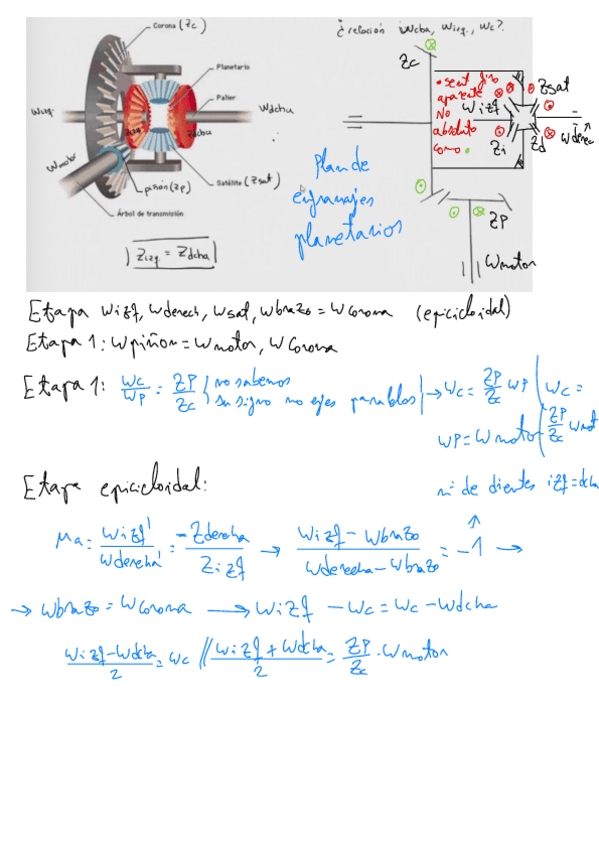 Corona (Zc)
Planetario
Palier
Wizq.
Wdcha
Zizq
Zdcha
Wmotor
piñón (Zp)
Satélite (Zsat)
Árbol de transmisión
Zizq. = Zdcha
¿relación Wdcha, Wizq., Wc?
Zc
• sent giro
aparente
No
absoluto
como
Wizq
Zsat
Wderec
Zi
Zd
Plan de
engranajes
planetarios
ZP
Wmotor
Etapa Wizq, Wderech, Wsat, Wbrazo = Wcorona (epicicloidal)
Etapa 1: Wpiñon = Wmotor, WCorona
Etapa 1: Wc/Wp = ZP/Zc no sabemos su signo no ejes paralelos → Wc = ZP/Zc WP Wc =
WP = Wmotor ZP/Zc Wmot
Etapa epicicloidal:
nº de dientes izq = dcha
Ma = Wizq'/Wderecha' = -Zderecha/Zizq → Wizq - Wbrazo/Wderecha - Wbrazo = -1 →
→ Wbrazo = Wcorona → Wizq - Wc = Wc - Wdcha
Wizq - Wdcha/2 = Wc // Wizq + Wdcha/2 = ZP/Zc · Wmotor